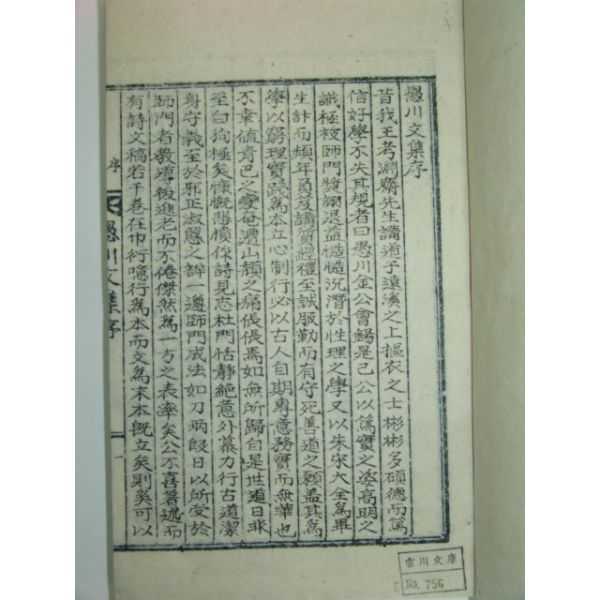 愚川文集序
昔我王考淵齋先生講道于遠溪之上摳衣之士彬彬多碩德而篤
信好學不失其規者曰愚川金公會錫是已公以篤實之姿高明之
識極被師門奬詡退益慥慥沉潛於性理之學又以朱宋大全爲畢
生計而頻年負笈講質經禮至誠服勤而有守死善道之願盖其爲
學以窮理實踐爲本立心制行必以古人自期專意務實而無華也
不幸値靑巴之變奄遭山頹之痛倀倀焉如無所歸自是世道日非
至白狗極矣慷慨悲憤侎詩見志杜門恬靜絶意外慕力行古道潔
身守義至於邪正淑慝之辨一遵師門成法如刀兩段日以所受於
師門者敎導後進老而不倦傑然爲一方之表率矣公不喜著述而
有詩文稿若干卷在巾衍噫行爲本而文爲末本旣立矣則奚可以
序
愚川文集序
雲川文庫
No. 756